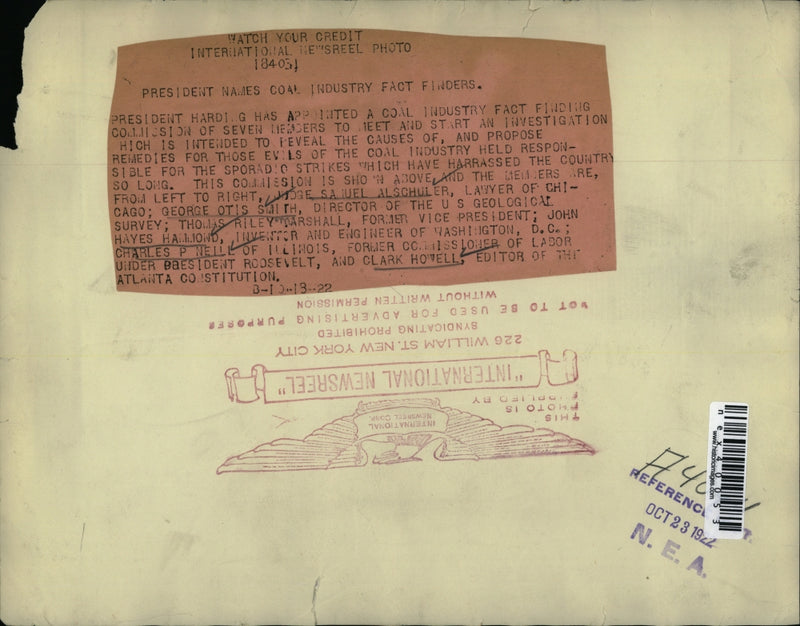 WATCH YOUR CREDIT
INTERNATIONAL NEWSREEL PHOTO
PRESIDENT NAMES COAL INDUSTRY FACT FINDERS.
PRESIDENT HARDING HAS APPOINTED A COAL INDUSTRY FACT FINDING
COMMISSION OF SEVEN MEMBERS TO MEET AND START AN INVESTIGATION
WHICH IS INTENDED TO REVEAL THE CAUSES OF, AND PROPOSE
REMEDIES FOR THOSE EVILS OF THE COAL INDUSTRY HELD RESPON-
SIBLE FOR THE SPORADIC STRIKES WHICH HAVE HARRASSED THE COUNTRY
SO LONG. THIS COMMISSION IS SHOWN ABOVE, AND THE MEMBERS ARE,
FROM LEFT TO RIGHT, JUDGE SAMUEL ALSCHULER, LAWYER OF CHI-
CAGO; GEORGE OTIS SMITH, DIRECTOR OF THE U S GEOLOGICAL
SURVEY; THOMAS RILEY MARSHALL, FORMER VICE PRESIDENT; JOHN
HAYES HAMMOND, INVENTOR AND ENGINEER OF WASHINGTON, D.C.;
CHARLES P NEILL OF ILLINOIS, FORMER COMMISSIONER OF LABOR
UNDER PRESIDENT ROOSEVELT, AND CLARK HOWELL, EDITOR OF THE
ATLANTA CONSTITUTION.
INTERNATIONAL
NEWSREEL CORP.
THIS
PHOTO IS
SUPPLIED BY
"INTERNATIONAL NEWSREEL"
226 WILLIAM ST. NEW YORK CITY
SYNDICATING PROHIBITED
NOT TO BE USED FOR ADVERTISING PURPOSES
WITHOUT WRITTEN PERMISSION
nex40053
www.historicimages.com
REFERENCE
OCT 23 1922
N. E. A.